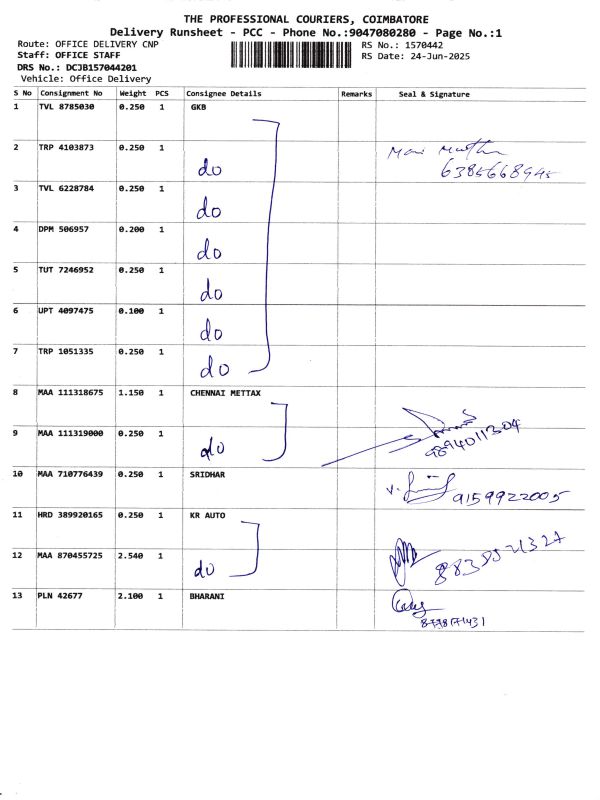 THE PROFESSIONAL COURIERS, COIMBATORE
Delivery Runsheet - PCC - Phone No.:9047080280 - Page No.:1
Route: OFFICE DELIVERY CNP RS No.: 1570442
Staff: OFFICE STAFF RS Date: 24-Jun-2025
DRS No.: DCJB157044201
Vehicle: Office Delivery
S No Consignment No Weight PCS Consignee Details Remarks Seal & Signature
1 TVL 8785030 0.250 1 GKB
2 TRP 4103873 0.250 1
do
3 TVL 6228784 0.250 1
do
4 DPM 506957 0.200 1
do
5 TUT 7246952 0.250 1
do
6 UPT 4097475 0.100 1
do
7 TRP 1051335 0.250 1
do
8 MAA 111318675 1.150 1 CHENNAI METTAX
9 MAA 111319000 0.250 1
do 9894011304
10 MAA 710776439 0.250 1 SRIDHAR
9159922005
11 HRD 389920165 0.250 1 KR AUTO
12 MAA 870455725 2.540 1
do
13 PLN 42677 2.100 1 BHARANI